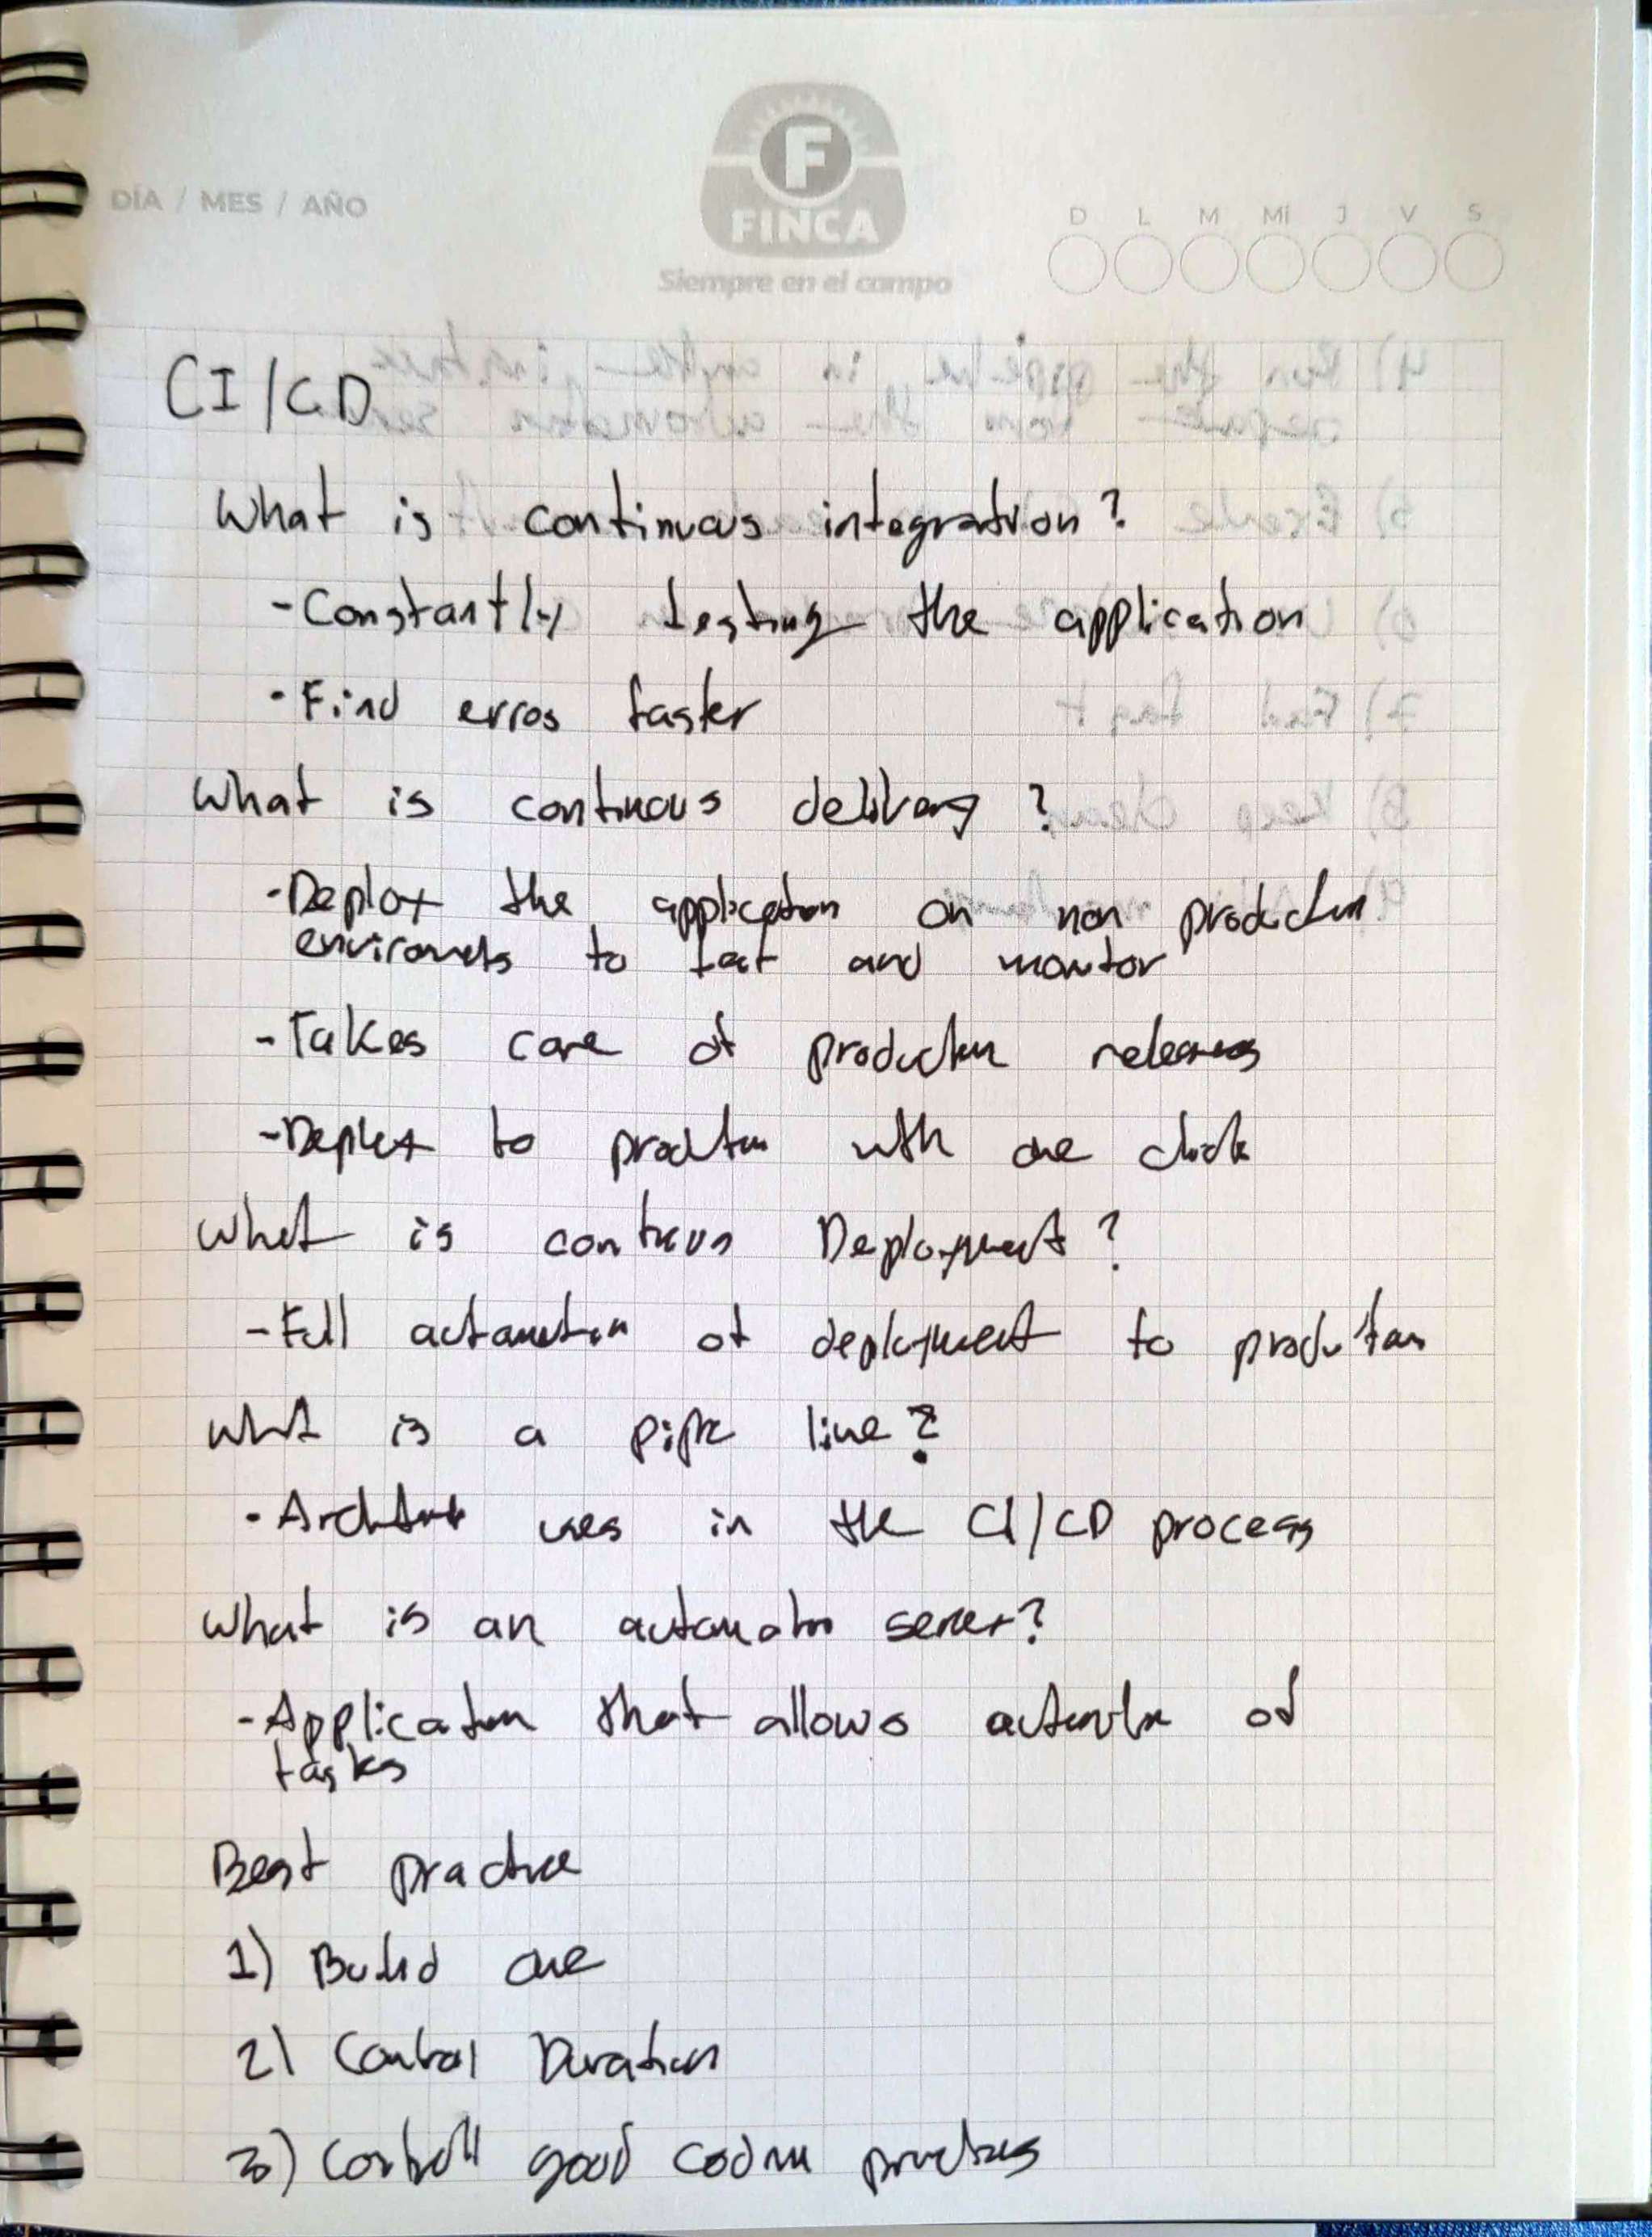 DÍA / MES / AÑO
F
FINCA
Siempre en el campo
D L M MI J V S
CI/CD
What is continuous integration?
- Constantly testing the application
- Find erros faster
What is continous delivery?
- Deploy the application on non production
enviroments to test and monitor
- Takes care of production releases
- Deploy to production with one click
What is continus Deployment?
- Full automation of deployment to production
what is a pipe line?
- uses in the CI/CD process
What is an automation server?
- Application that allows automation of
tasks
Best practice
1) Build one
2) Control Duration
3) Controll good coding practices